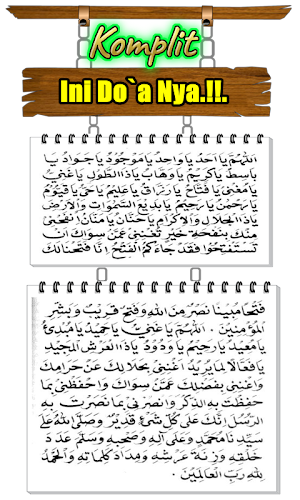 Komplit
Ini Do`a Nya.!!.
اَللّٰهُمَّ يَا اَحَدُ يَا وَاحِدُ يَا مَوْجُوْدُ يَا جَوَادُ يَا
بَاسِطُ يَا كَرِيْمُ يَا وَهَّابُ يَا ذَا الطَّوْلِ يَا غَنِيُّ
يَا مُغْنِيُ يَا فَتَّاحُ يَا رَزَّاقُ يَا عَلِيْمُ يَا حَيُّ يَا قَيُّوْمُ
يَا رَحْمٰنُ يَا رَحِيْمُ يَا بَدِيْعَ السَّمٰوَاتِ وَالْاَرْضِ
يَا ذَا الْجَلَالِ وَالْاِكْرَامِ يَا حَنَّانُ يَا مَنَّانُ اِنْفَحْنِيْ
مِنْكَ بِنَفْحَةِ خَيْرٍ تُغْنِنِيْ عَمَّنْ سِوَاكَ اِنْ
تَسْتَفْتِحُوْا فَقَدْ جَاءَكُمُ الْفَتْحُ اِنَّا فَتَحْنَا لَكَ
فَتْحًا مُبِيْنًا نَصْرٌ مِنَ اللهِ وَفَتْحٌ قَرِيْبٌ وَبَشِّرِ
الْمُؤْمِنِيْنَ . اَللّٰهُمَّ يَا غَنِيُّ يَا حَمِيْدُ يَا مُبْدِئُ
يَا مُعِيْدُ يَا رَحِيْمُ يَا وَدُوْدُ يَا ذَا الْعَرْشِ الْمَجِيْدِ
يَا فَعَّالًا لِمَا يُرِيْدُ اِغْنِنِيْ بِحَلَالِكَ عَنْ حَرَامِكَ
وَاغْنِنِيْ بِفَضْلِكَ عَمَّنْ سِوَاكَ وَاحْفَظْنِيْ بِمَا
حَفِظْتَ بِهِ الذِّكْرَ وَانْصُرْنِيْ بِمَا نَصَرْتَ بِهِ
الرُّسُلَ اِنَّكَ عَلٰى كُلِّ شَيْئٍ قَدِيْرٌ وَصَلَّى اللهُ عَلٰى
سَيِّدِنَا مُحَمَّدٍ وَعَلٰى اٰلِهِ وَصَحْبِهِ وَسَلَّمَ عَدَدَ
خَلْقِهِ وَزِنَةَ عَرْشِهِ وَمِدَادَ كَلِمَاتِهِ وَالْحَمْدُ
لِلّٰهِ رَبِّ الْعَالَمِيْنَ .